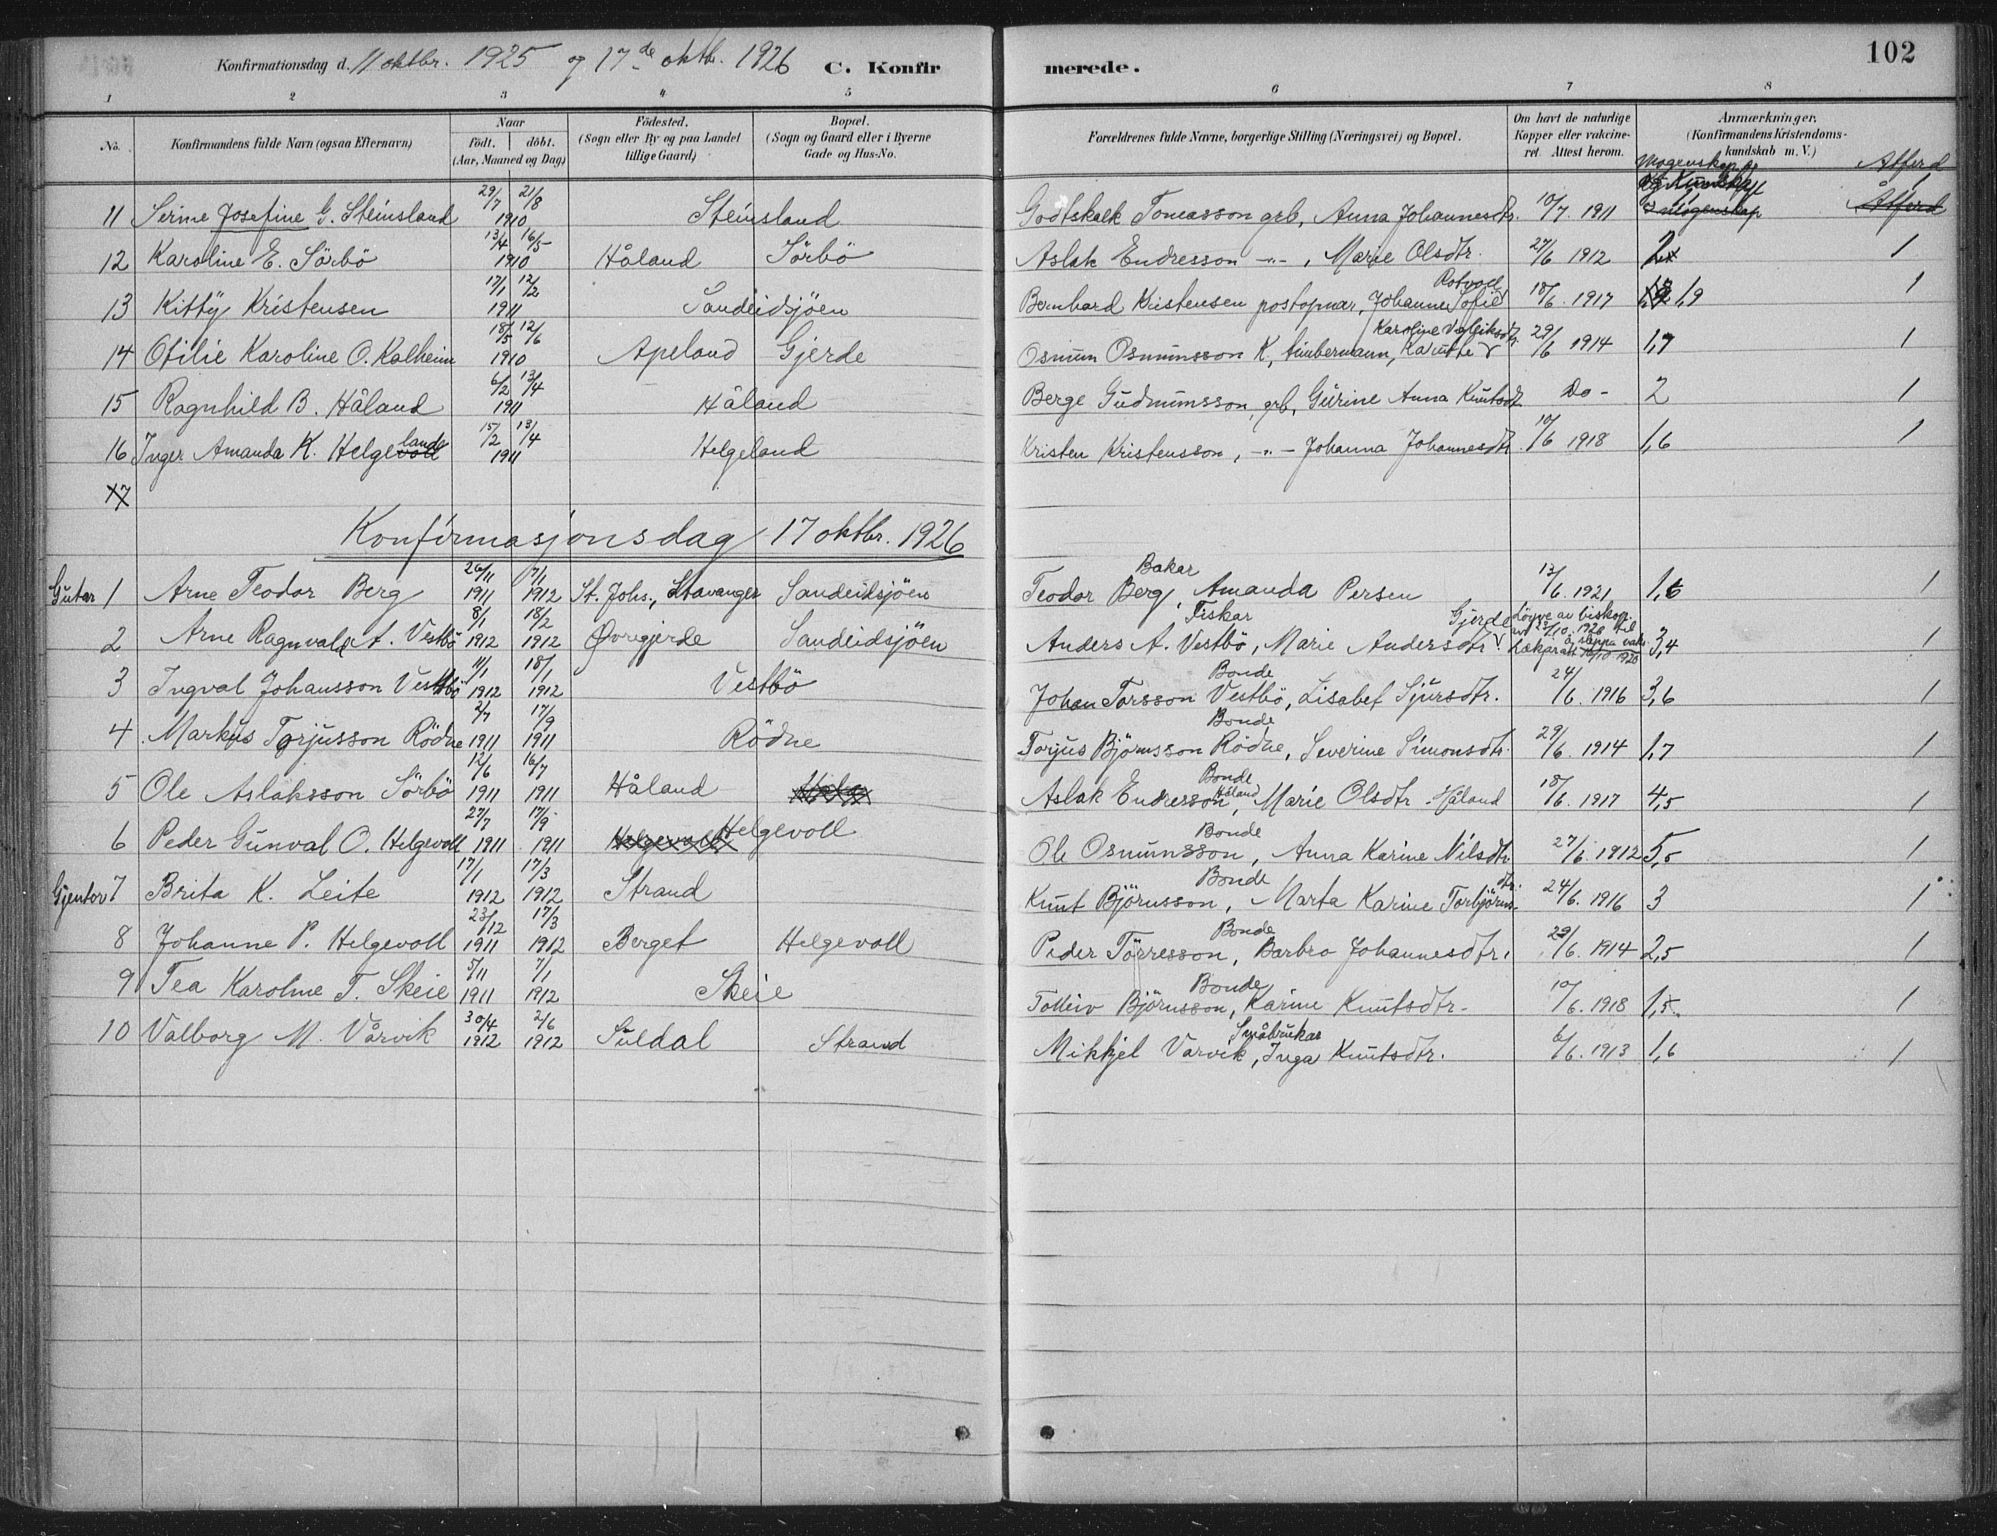 Konfirmationsdag d. 11 oktbr. 1925 og 17de oktbr. 1926 C. Konfirmerede. 102
1 2 3 4 5 6 7 8
No. Konfirmandens fulde Navn (ogsaa Efternavn) Naar födt. döbt. (Aar, Maaned og Dag) Födested. (Sogn eller By og paa Landet tillige Gaard) Bopæl. (Sogn og Gaard eller i Byerne Gade og Hus-No. Forældrenes fulde Navne, borgerlige Stilling (Næringsvei) og Bopæl. Om havt de naturlige Kopper eller vakcineret. Attest herom. Anmærkninger. (Konfirmandens Kristendomskundskab m. V.)
Mogenskap Atferd
11 Serine Josefine G. Steinsland 29/7 1910 21/8 Steinsland Godtskalk Tomasson grb, Anna Johannesdtr. 10/7. 1911 Mogenskap Åtferd 1
12 Karoline E. Sörbö 13/4 1910 16/5 Håland Sörbö Aslak Endresson -"- , Marie Olsdtr. 27/6 1912 2 1
13 Kitty Kristensen 17/1 1911 12/2 Sandeidsjöen Bernhard Kristensen postopnar, Johanne Sofie Rotvoll 18/6. 1917 1,9 1
14 Otilie Karoline O. Kalheim 18/5 1910 12/6 Apeland Gjerde Osmun Osmunsson K, timbermann, Karoline Valeiksdtr. 29/6 1914 1,7 1
15 Ragnhild B. Håland 6/2 1911 13/4 Håland Berge Gudmunsson, grb, Gurine Anna Knutsdt. Do - 2 1
16 Inger Amanda K. Helgeland 15/2 1911 13/4 Helgeland Kristen Kristensson, -"- Johanna Johannesdtr. 10/6 1918 1,6 1
17
Konfirmasjonsdag 17 oktbr. 1926
Gutar 1 Arne Teodor Berg 26/11 1911 7/1 1912 St. Johs., Stavanger Sandeidsjöen Bakar Teodor Berg, Amanda Persen 13/6. 1921 1,6 1
2 Arne Ragnvald A. Vestbö 8/1 1912 18/2 1912 Øvregjerde Sandeidsjöen Fiskar Anders A. Vestbö, Marie Andersdtr Gjerde Löyve av biskop 23/10. 1926 til å sleppa vaks. 3,4 1
3 Ingval Johansson Vestbö 11/1 1912 18/1 1912 Vestbö Bonde Johan Torsson Vestbö, Lisabet Sjursdtr. 24/6. 1916 3,6 1
4 Markus Torjusson Rödne 2/7 1911 17/9 1911 Rödne Bonde Torjus Björnsson Rödne, Severine Simonsdtr. 29/6. 1914 1,7 1
5 Ole Aslaksson Sörbö 12/6 1911 16/7 1911 Håland Bonde Aslak Endresson Håland, Marie Olsdtr. Håland 18/6. 1917 4,5 1
6 Peder Gunval O. Helgevoll 27/7 1911 17/9 1911 Helgevoll Helgevoll Bonde Ole Osmunsson, Anna Karine Nilsdtr 27/6. 1912 5,5 1
Gjentor 7 Brita K. Leite 17/1 1912 17/3 1912 Strand Bonde Knut Björnsson, Marta Karine Torbjörnsdtr. 24/6. 1916 3 1
8 Johanne P. Helgevoll 23/12 1911 17/3 1912 Berget Helgevoll Bonde Peder Törresson, Barbro Johannesdtr. 29/6. 1914 2,5 1
9 Tea Karoline T. Skeie 5/11 1911 7/1 1912 Skeie Bonde Tolleiv Björnsson, Karine Knutsdtr. 10/6. 1918 1,5 1
10 Valborg M. Vårvik 30/4 1912 2/6 1912 Suldal Strand Småbrukar Mikkjel Varvik, Inga Knutsdtr. 6/6. 1913 1,6 1